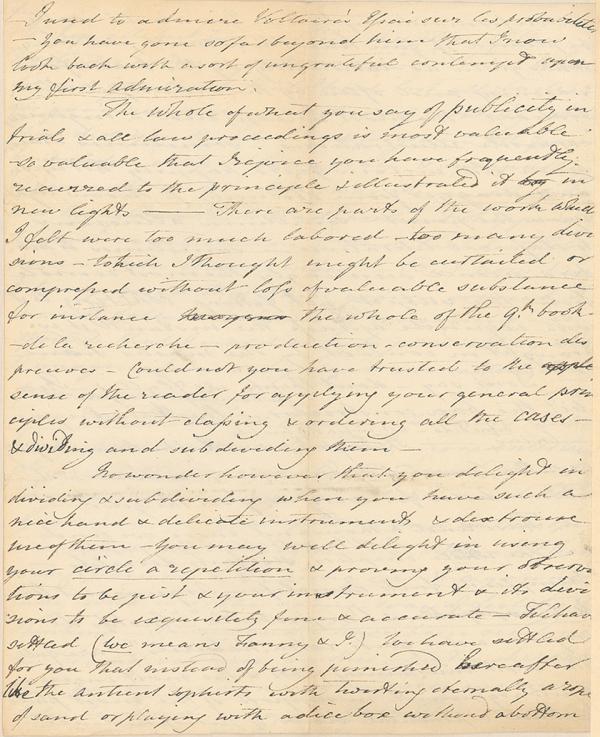 I used to admire Voltaire's Essai sur les probabilités
– You have gone so far beyond him that I now
look back with a sort of ungrateful contempt upon
my first admiration.
The whole of what you say of publicity in
trials & all law proceedings is most valuable
– so valuable that I rejoice you have frequently
recurred to the principle & illustrated it in
new lights —— There are parts of the work which
I felt were too much labored – too many divi
sions – which I thought might be curtailed or
compressed without loss of valuable substance
for instance the whole of the 9th book –
– de la recherche – production – conservation des
preuves – Could not you have trusted to the
sense of the reader for applying your general prin
ciples without classing & ordering all the cases –
& dividing and subdividing them –
No wonder however that you delight in
dividing & subdividing when you have such a
nice hand & delicate instruments & dextrous
use of them – You may well delight in using
your circle a repetition & proving your observa
tions to be just & your instrument & its divi
sions to be exquisitely fine & accurate – We have
settled (we means Fanny & I.) We have settled
for you that instead of being punished hereafter
like the antient sophists with twisting eternally a rope
of sand or playing with a dice box without a bottom